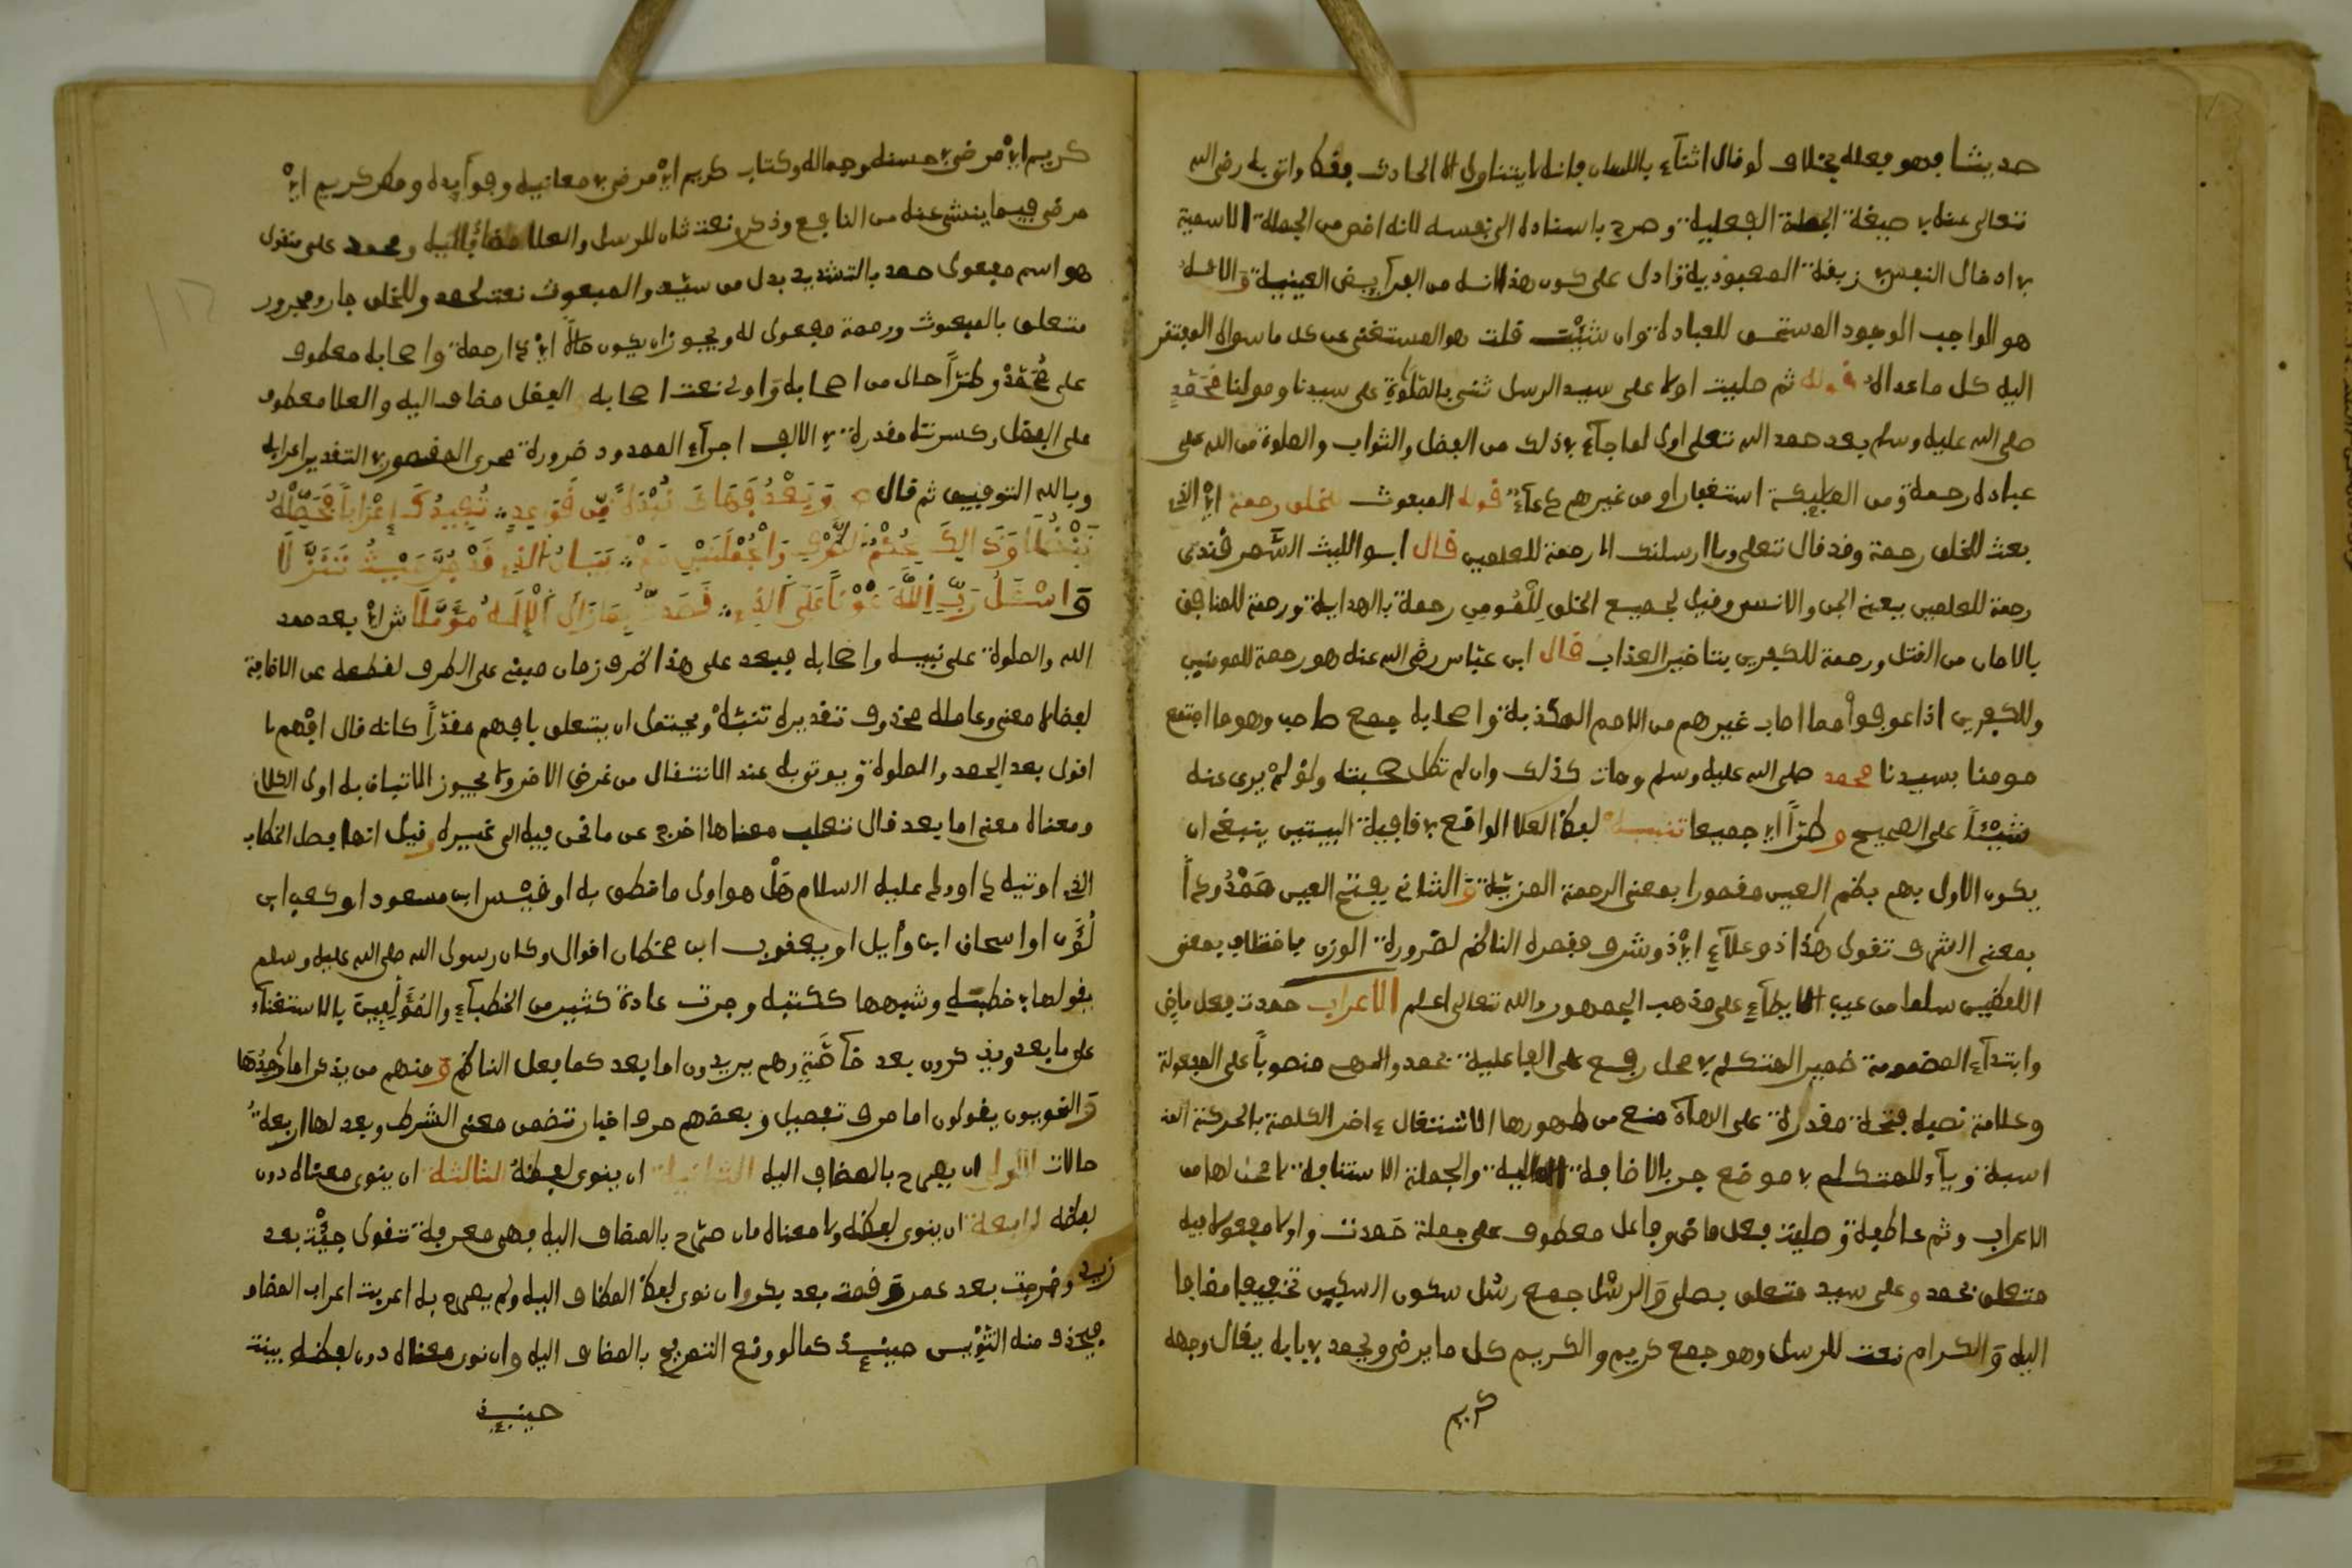 حديثا فهو فعله بخلاف لو قال اثناء باللسان فانه لا يتناول الا الحادث فقط واتى به رضى الله
تعالى عنه بصيغة الجملة الفعلية وصرح باسناده الى نفسه لانه اخص من الجملة الاسمية
هو الواجب الوجود المستحق للعبادة وان شئت قلت هو المستغنى عن كل ما سواه المفتقر
اليه كل ما عداه قوله ثم صليت اولا على سيد الرسل ثنى بالصلوة على سيدنا ومولنا محمد
صلى الله عليه وسلم بعد حمد الله تعلى اولى لما جاء في ذلك من الفضل والثواب والصلوة من الله على
عباده رحمة ومن المليكة استغفار ومن غيرهم دعاء قوله المبعوث للخلق رحمة اي الذي
بعث للخلق رحمة وقد قال تعلى وما ارسلنك الا رحمة للعلمين قال ابو الليث السمرقندى
رحمة للعلمين يعنى الجن والانس وقيل لجميع الخلق للمومن رحمة بالهداية ورحمة للمنافق
بالامان من القتل ورحمة للكفرين بتاخير العذاب قال ابن عباس رضى الله عنه هو رحمة للمومنين
وللكفرين اذا عوفوا مما اصاب غيرهم من الامم المكذبة واصحابه جمع صاحب وهو ما اجتمع
مومنا بسيدنا محمد صلى الله عليه وسلم ومات كذلك وان لم تطل صحبته ولو لم يرى عنه
شيئا على الصحيح وطرا اي جميعا تنبيه لفظ العلا الواقع في قافية البيتين ينبغى ان
يكون الاول بهم بضم العين مقصورا بمعنى الرحمة المزية والثانى بفتح العين ممدودا
بمعنى الشرف تقول هذا ذو علاء اي ذو شرف فقصره الناظم لضرورة الوزن
اللفظين سلما من عيب الايطاء على مذهب الجمهور والله تعالى اعلم الاعراب حمدت فعل ماض
وابتداء المضمومة ضمير المتكلم في محل رفع على الفاعلية بحمد والهم منصوبا على المفعولة
وعلامة نصبه فتحة مقدرة على الهاء منع من ظهورها الاشتغال اخر الكلمة بالحركة
وياء المتكلم في موضع جر بالاضافة اليه والجملة الاستنافية لا محل لها من
الاعراب وثم عاطفة وصليت فعل ماض وفاعل معطوف على جملة حمدت واولا مفعول فيه
متعلق بحمد وعلى سيد متعلق بصلى والرسل جمع رسل سكون السين تخفيفا مضافا
اليه والكرام نعت للرسل وهو جمع كريم والكريم كل ما يرضى ويحمد في بابه يقال وجهه
كريم
كريم اي مرضى في حسنه وجماله وكتاب كريم اي مرضى في معانيه وفوائده ومطر كريم اي
مرضى فيما ينشئ عنه من النافع وذكر نعت ثان للرسل والعلا مضاف اليه ومحمد على منقول
هو اسم مفعول حمد بالتشديد بدل من سيد والمبعوث نعت لحمد وللخلق جار ومجرور
متعلق بالمبعوث ورحمة مفعول له ويجوز ان يكون حالا اي ذا رحمة واصحابه معطوف
على محمد وطرا حال من اصحابه واولى نعت اصحابه الفضل مضاف اليه والعلا معطوف
على الفضل وكسرته مقدرة في الالف اجراء الممدود ضرورة مجرى المقصور في التقدير اعرابه
وبالله التوفيق ثم قال وبعد فهاك نبذة من قواعد تفيدك اعرابا فحصله
واسئل رب الله عونا على الذى قصدت بما زال الاله مؤملا ش اي بعد حمد
الله والصلوة على نبيه واصحابه فبعد على هذا ظرف زمان مبنى على الظرف لقطعه عن الاضافة
لفظا لا معنى وعامله محذوف تقديره تنبه ويحتمل ان يتعلق بافهم مقدرا كانه قال افهم ما
اقول بعد الحمد والصلوة ويوتى به عند الانتقال من غرض الاخر ولا يجوز الاتيان به اول الكلام
ومعناه معنى اما بعد قال ثعلب معناها اخرج عن ما نحن فيه الى غيره وقيل انها فصل الخطاب
الذى اوتيه داوود عليه السلام هل هو اول ما نطق به او قيس ابن مسعود او كعب ابن
لؤى او اسحاق ابن وايل او يعقوب ابن قحطان اقوال وكان رسول الله صلى الله عليه وسلم
يقولها في خطبته وشبهها ككتبه وجرت عادة كثير من الخطباء والمؤلفين بالاستغناء
على ما بعد ويذكرون بعد خآصة وهم يريدون اما بعد كما فعل الناظم ومنهم من يذكر اما وحدها
والنحويون يقولون اما حرف تفصيل وبعضهم حرف اخبار تتضمن معنى الشرط وبعد لها اربعة
حالات الاولى ان يصرح بالمضاف اليه الثانية ان ينوى لفظه الثالثة ان ينوى معناه دون
لفظه الرابعة ان ينوى لفظه ولا معناه فان صرح بالمضاف اليه فهى معربة تقول جئت بعد
زيد وخرجت بعد عمر وقمت بعد بكر وان نوى لفظ المضاف اليه ولم يصرح به اعربت اعراب المضاف
فيحذف منه التنوين حينئذ كما لو وقع التصريح بالمضاف اليه وان نوى معناه دون لفظه بنيت
حينئذ